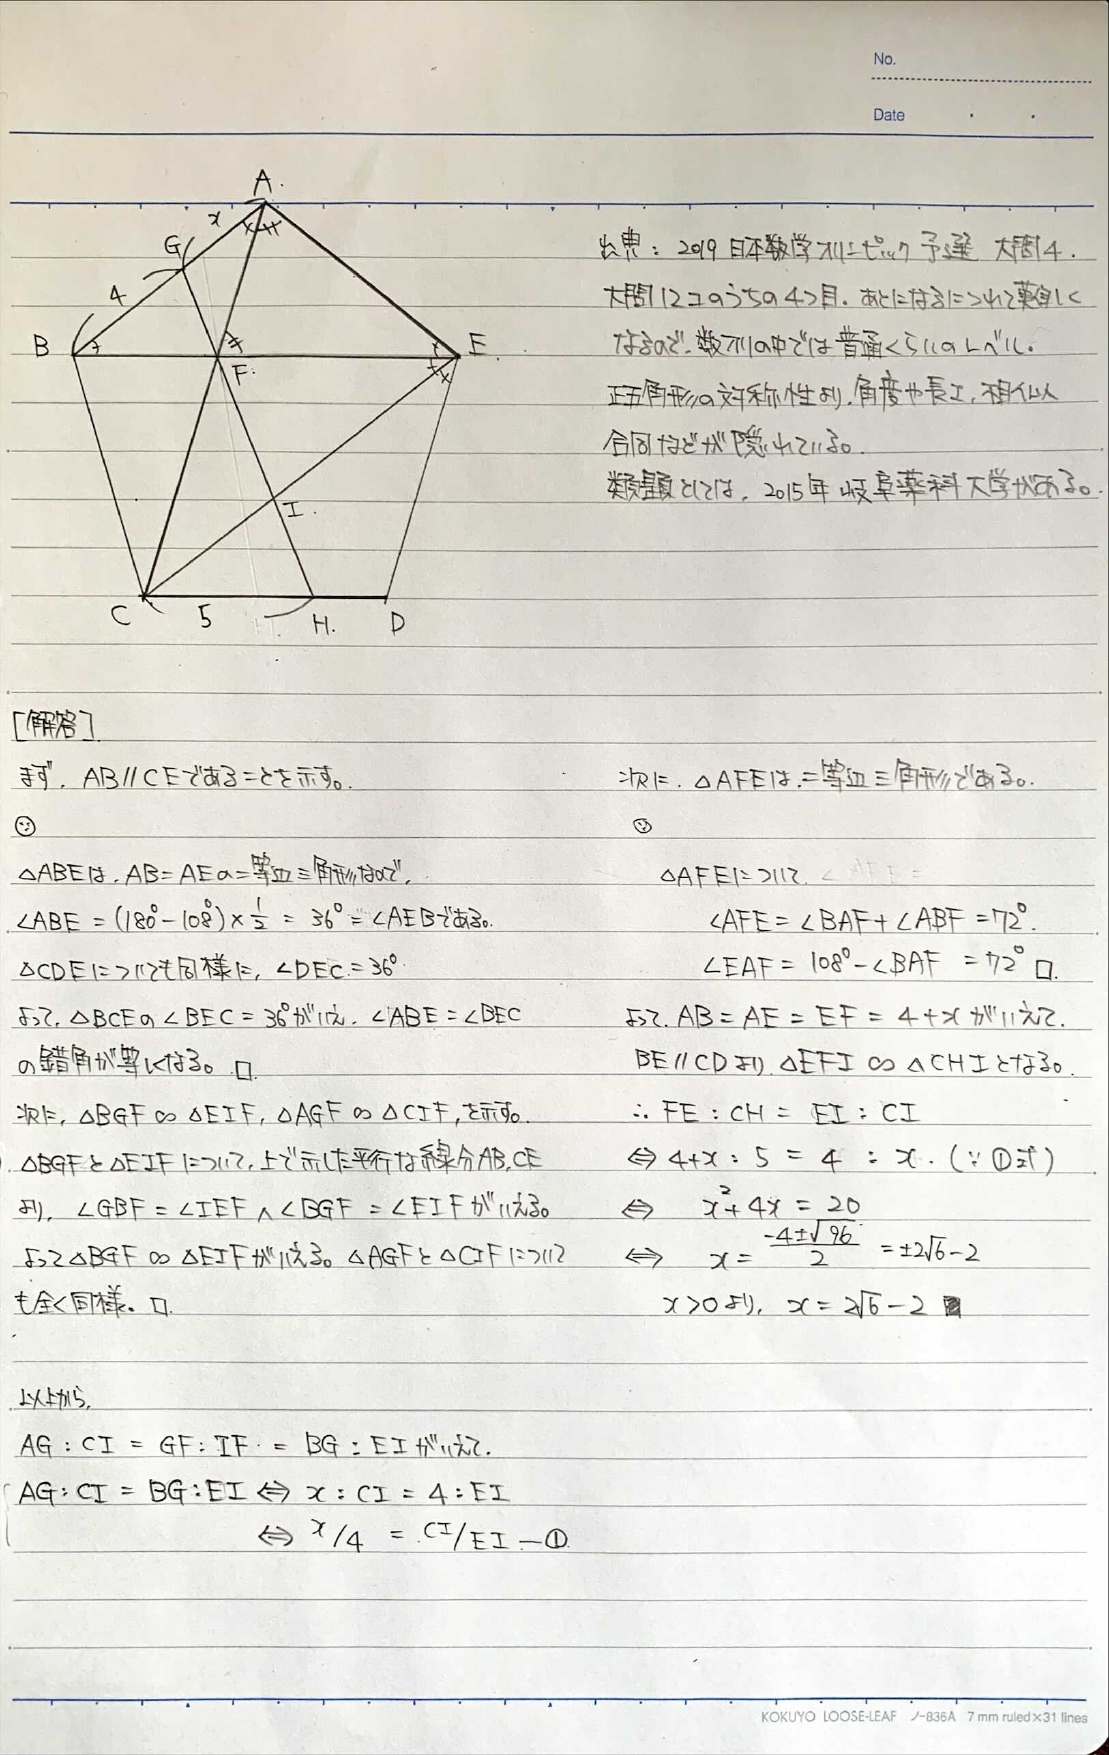 No.
Date
A.
x
G
4
B
E.
F
I.
C
5
H.
D
出典：2019日本数学オリンピック予選 大問4.
大問12コのうちの4つ目。あとになるにつれて難しく
なるので、数オリの中では普通くらいのレベル。
正五角形の対称性より、角度や長さ、相似や
合同などが隠れている。
類題としては、2015年岐阜薬科大学がある。
[解答]
まず、AB//CEであることを示す。
△ABEは、AB=AEの二等辺三角形なので、
∠ABE = (180°-108°)×1/2 = 36° = ∠AEBである。
△CDEについても同様に、∠DEC=36°
よって、△BCEの∠BEC=36°がいえ、∠ABE=∠BEC
の錯角が等しくなる。□
次に、△BGF∽△EIF、△AGF∽△CIF、を示す。
△BGFと△EIFについて、上で示した平行な線分AB,CE
より、∠GBF=∠IEF∧∠BGF=∠EIFがいえる。
よって△BGF∽△EIFがいえる。△AGFと△CIFについて
も全く同様。□
以上から、
AG:CI = GF:IF = BG:EIがいえて、
AG:CI = BG:EI ⇔ x:CI = 4:EI
⇔ x/4 = CI/EI ―①
次に、△AFEは、二等辺三角形である。
△AFEについて
∠AFE = ∠BAF+∠ABF = 72°
∠EAF = 108°-∠BAF = 72° □
よって、AB=AE=EF=4+xがいえて、
BE//CDより △EFI∽△CHIとなる。
∴ FE:CH = EI:CI
⇔ 4+x:5 = 4:x. (∵①式)
⇔ x²+4x = 20
⇔ x = (-4±√96)/2 = ±2√6-2
x>0より、x=2√6-2 ■
KOKUYO LOOSE-LEAF ノ-836A 7mm ruled×31 lines